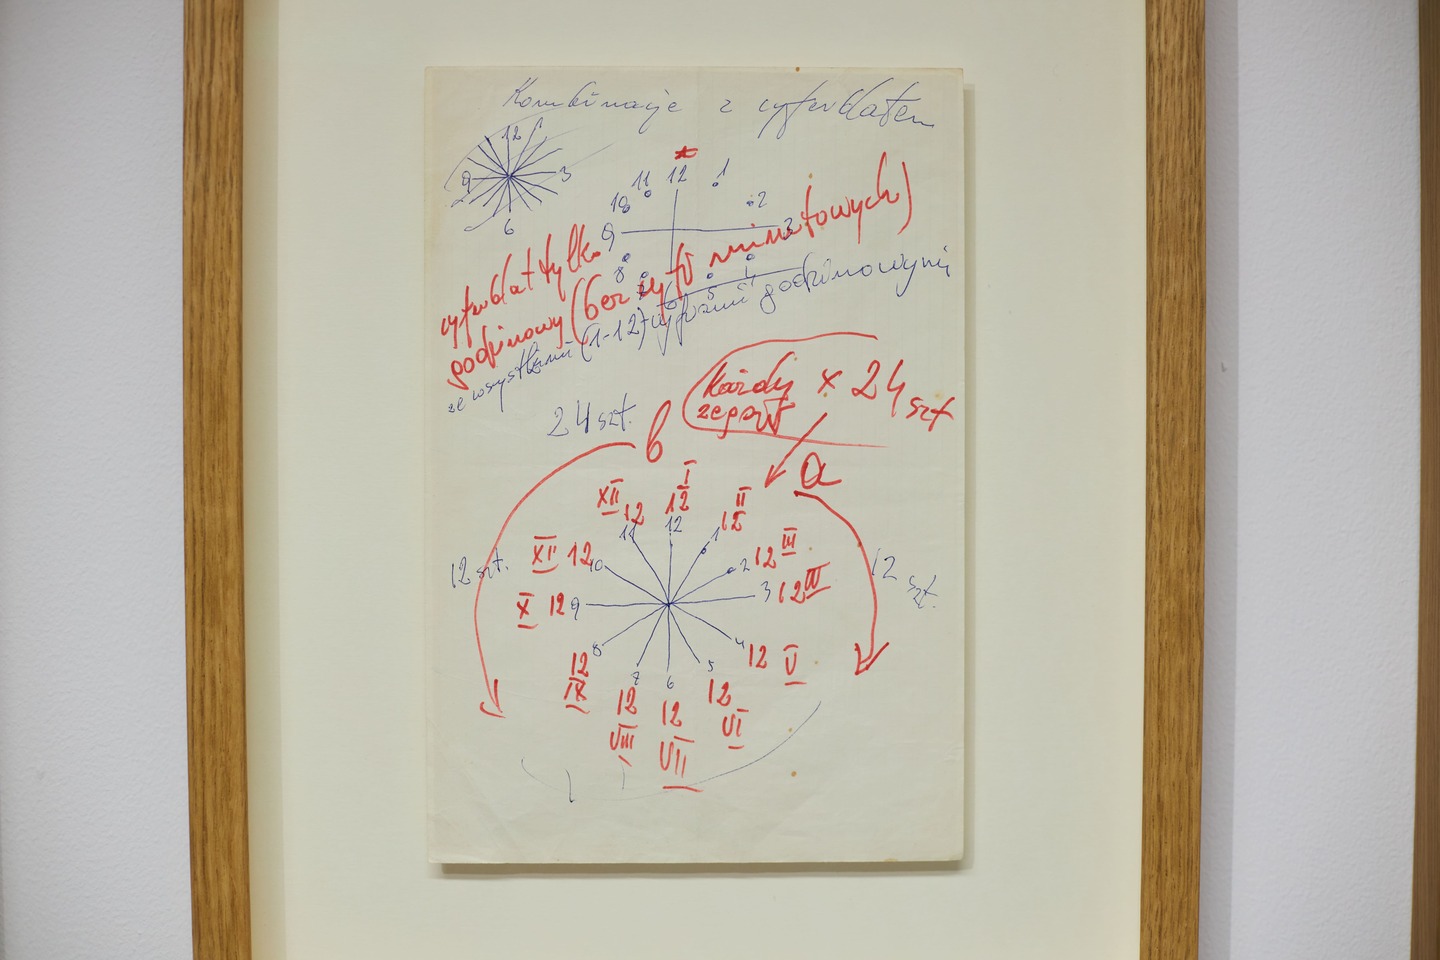 Kombinacje z cyferblatem
12
9 3
6
11 12 1
10 2
9 3
8 4
7 6 5
cyferblat tylko
godzinowy (bez cyfr minutowych)
ze wszystkimi (1-12) cyframi godzinowymi
każdy x 24 szt
zegar
24 szt. b
a
I
XII 12 12 II
12 12
11 12 1
XI 12 10 2 12 III
12 szt. 12 szt.
X 12 9 3 12 IV
8 4 12 V
12 7 6 5
IX 12 12 12
VIII VII VI